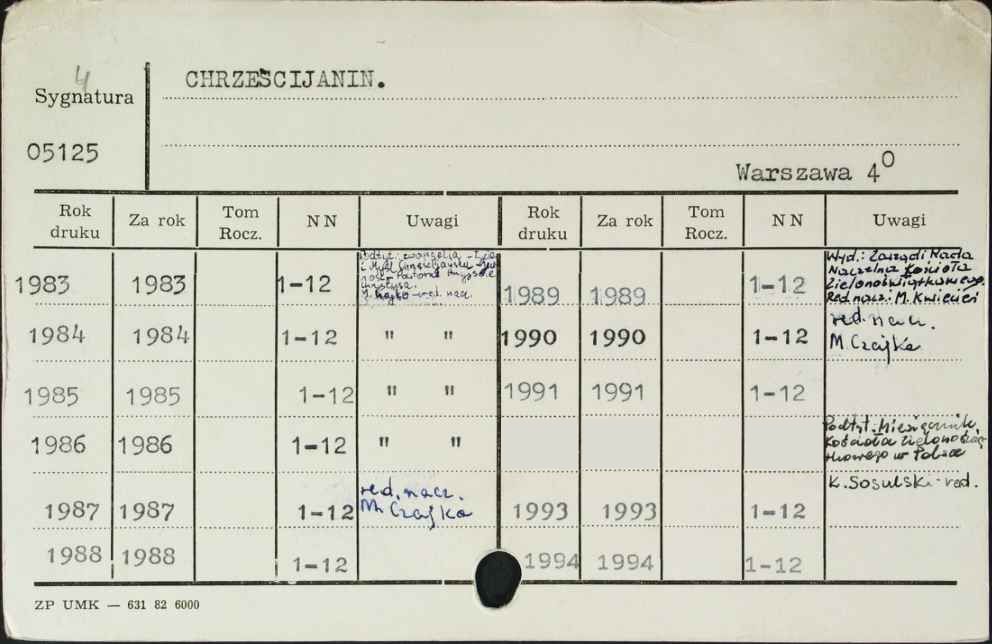 4
Sygnatura
CHRZEŚCIJANIN.
05125
Warszawa 4⁰
Rok druku Za rok Tom Rocz. NN Uwagi Rok druku Za rok Tom Rocz. NN Uwagi
1983 1983 1-12
i Myśl Chrześcijańska
Chrystusa.
red. nacz.
1989 1989 1-12 Wyd.: Zarządi Rada
Naczelna Kościoła
Zielonoświątkowego.
Red nacz: M. Kwiecień
1984 1984 1-12 " "
1990 1990 1-12 red. nacz.
M. Czajka
1985 1985 1-12 " "
1991 1991 1-12
1986 1986 1-12 " "
Podtyt. Miesięcznik
Kościoła Zielonoświą-
tkowego w Polsce
1987 1987 1-12 red. nacz.
M. Czajko
1993 1993 1-12 K. Sosulski-red.
1988 1988 1-12
1994 1994 1-12
ZP UMK — 631 82 6000